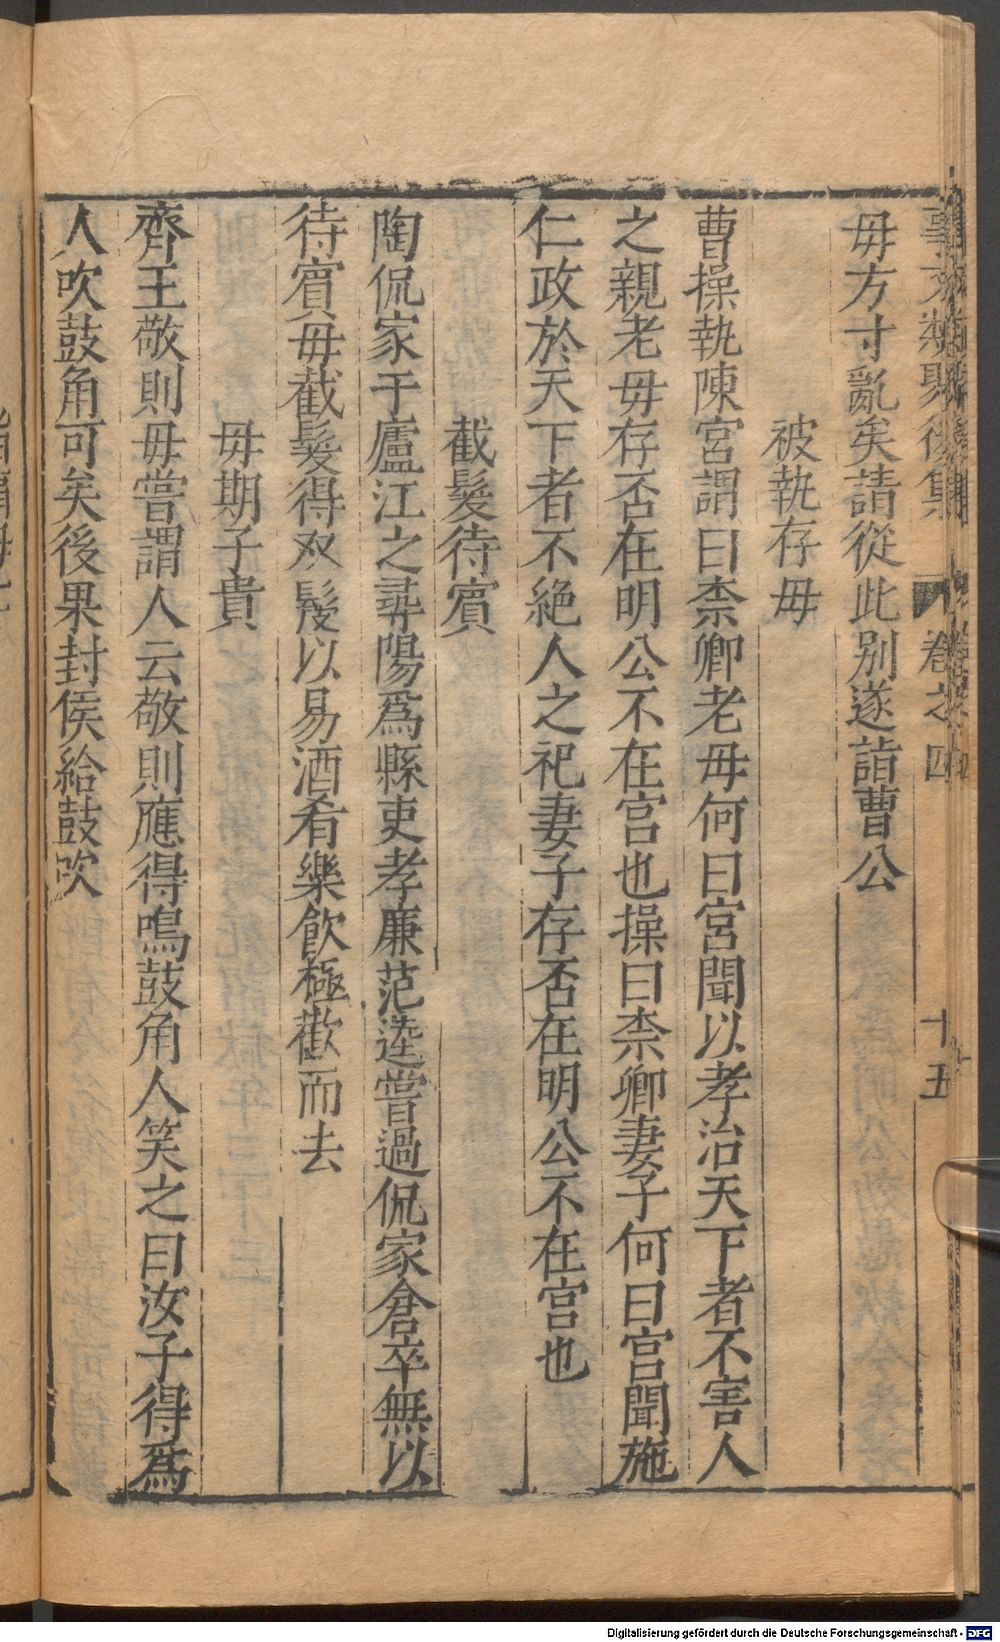 事文類聚後集 卷之四 十五
毋方寸亂矣請從此别遂詣曹公
被執存毋
曹操執陳宮謂曰柰卿老毋何曰宮聞以孝治天下者不害人
之親老毋存否在明公不在宮也操曰柰卿妻子何曰宮聞施
仁政於天下者不絶人之祀妻子存否在明公不在宮也
截髮待賓
陶侃家于廬江之尋陽爲縣吏孝廉范逵嘗過侃家倉卒無以
待賓毋截髮得双髲以易酒肴樂飲極歡而去
毋期子貴
齊王敬則毋嘗謂人云敬則應得鳴鼓角人笑之曰汝子得爲
人吹鼓角可矣後果封侯給鼓吹
Digitalisierung gefördert durch die Deutsche Forschungsgemeinschaft - DFG